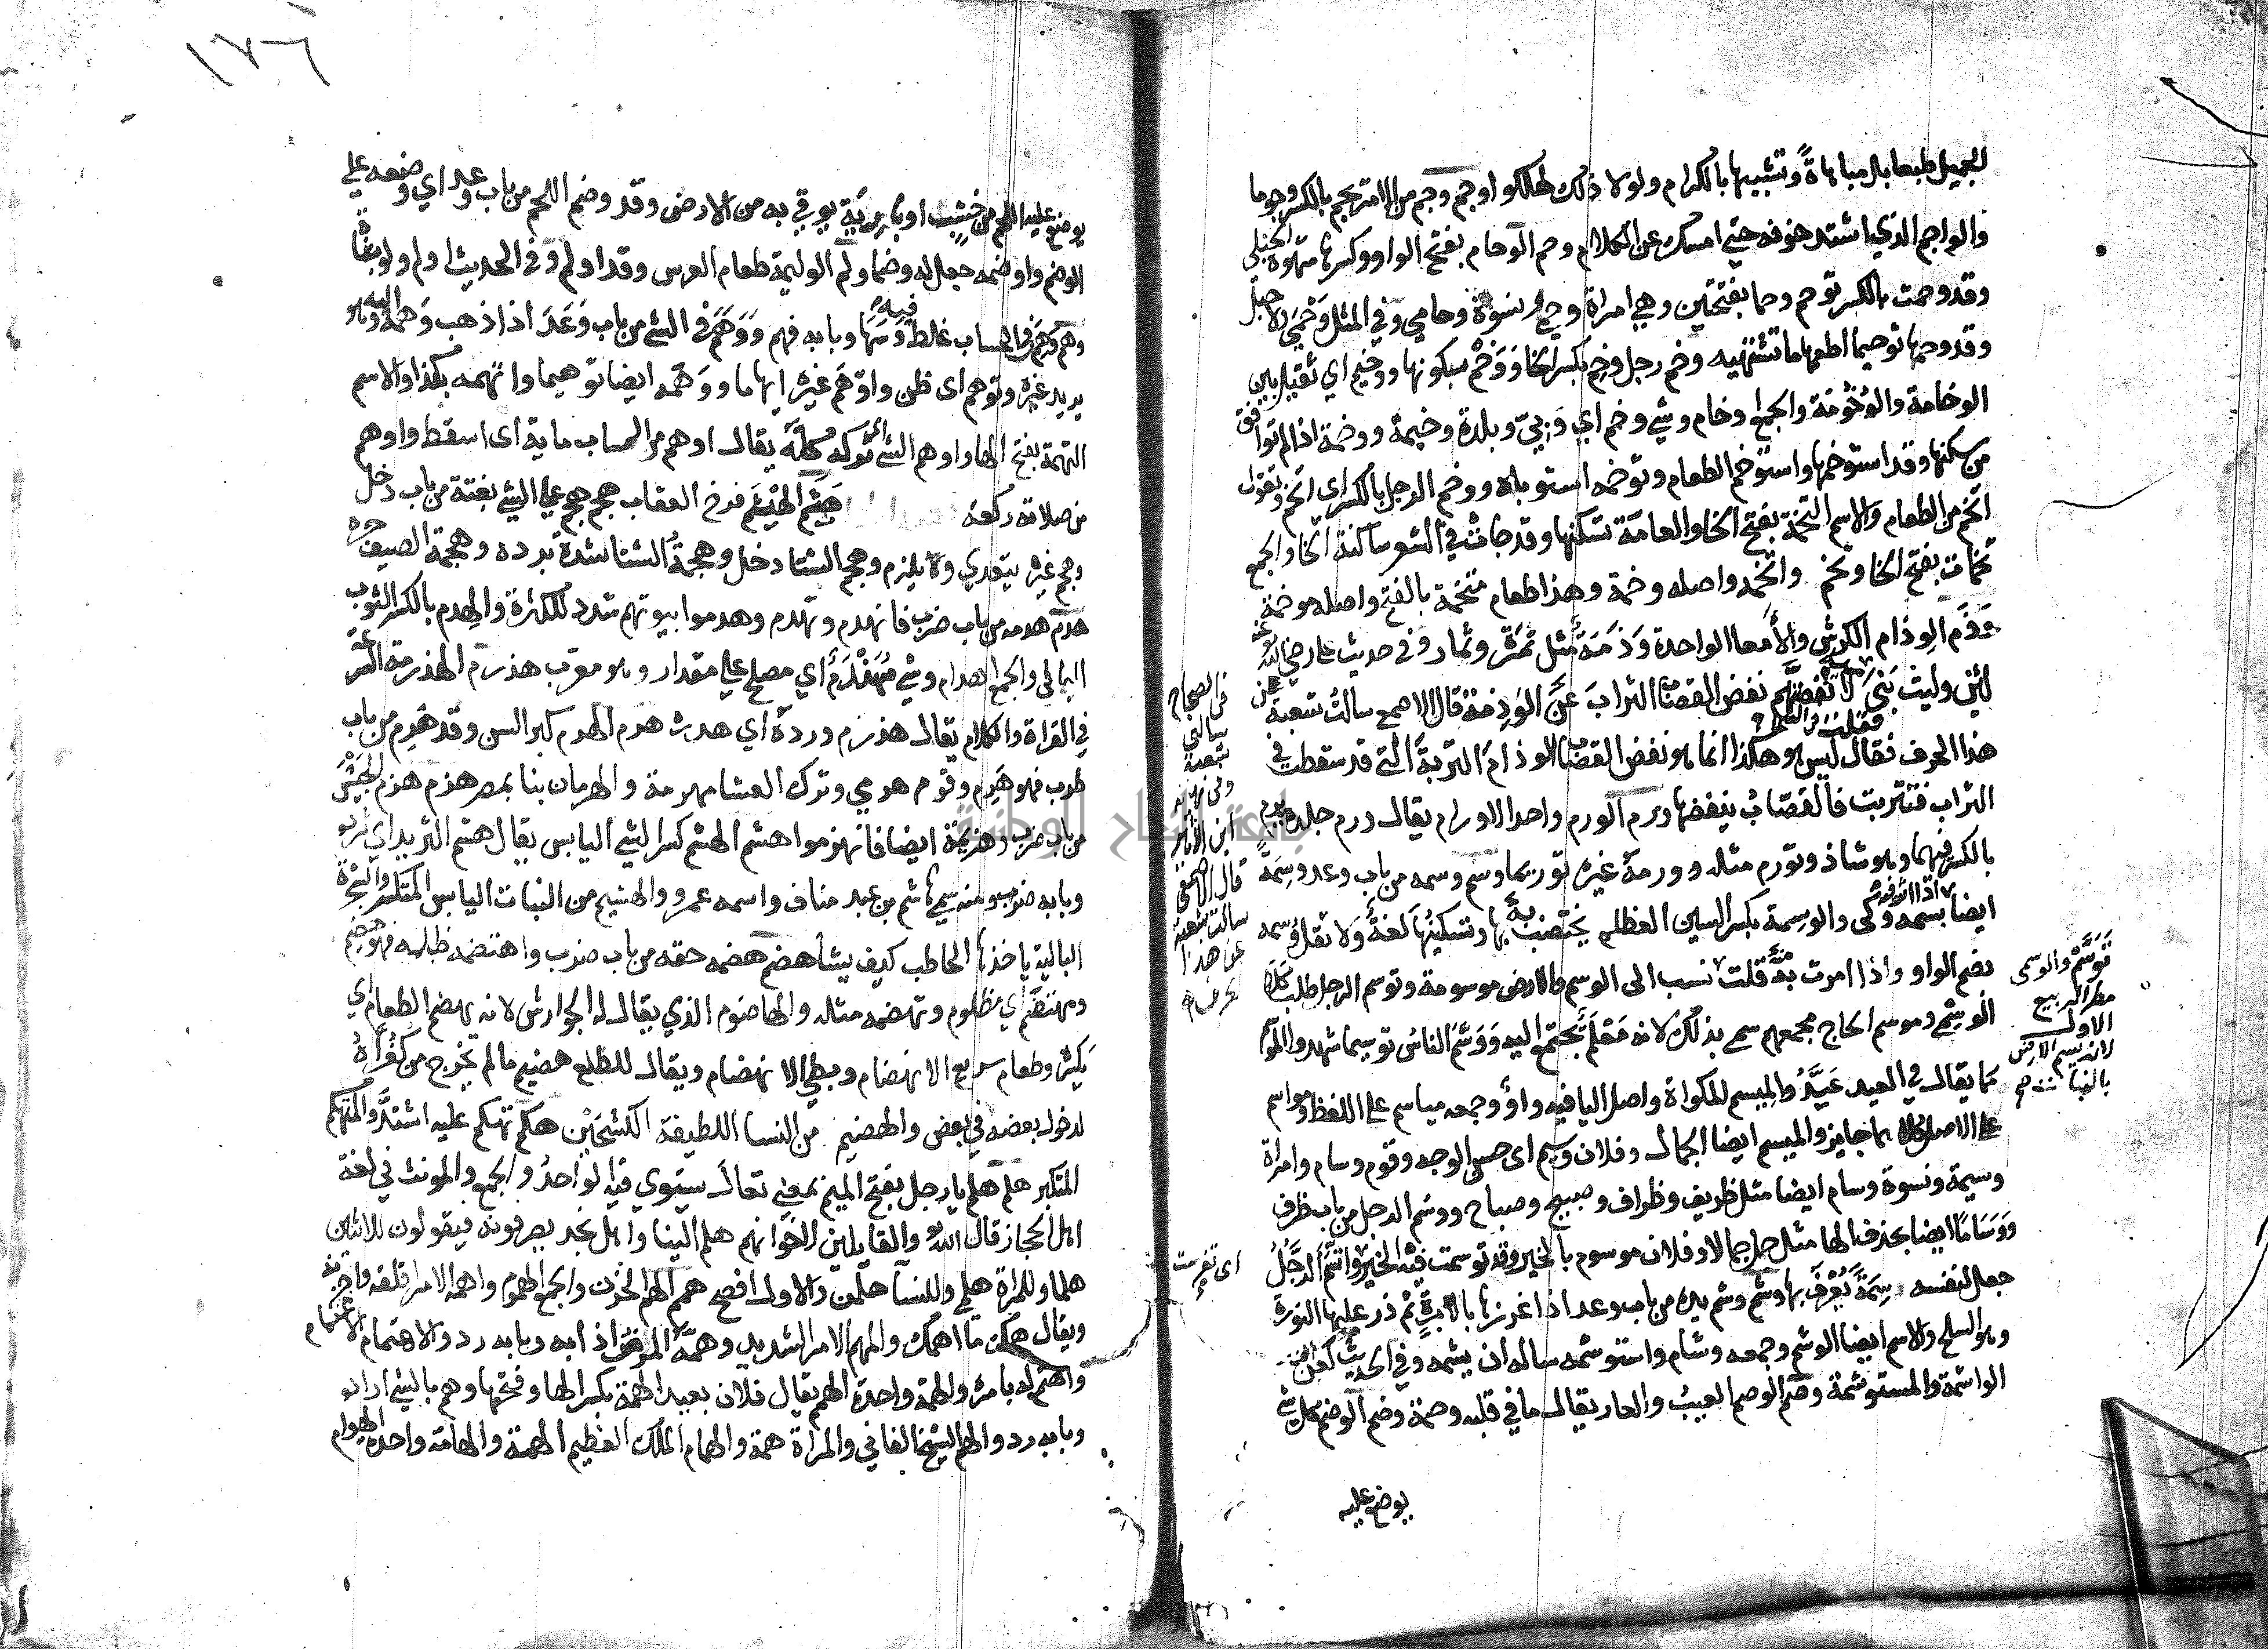 الجميل طبعا بل مباهاة وتشبيها بالكرام ولولا ذلك لهلكوا وجم وجم من الامر يجم بالكسر وجوما
والواجم الذي اشتد حزنه حتى امسك عن الكلام وحم الوحام بفتح الواو وكسرها شهوة الحبلى
وقد وحمت بالكسر توحم وحما بفتحتين وهي امراة وحمى ونسوة وحامى وفي المثل وحمى ولا حبل
وقد وحمها توحيما اطعمها ما تشتهيه وخم رجل وخم بكسر الخا ووخم بسكونها ووخيم اي ثقيل بين
الوخامة والوخومة والجمع وخام وشي وخم اي وبي وبلدة وخيمة ووخمة اذا لم توافق
من سكنها وقد استوخمها واستوخم الطعام وتوخمه استوبله ووخم الرجل بالكسر اى اتخم وتقول
اتخم من الطعام والاسم التخمة بفتح الخا والعامة تسكنها وقد جات في الشعر ساكنة الخا والجمع
تخمات بفتح الخا وتخم واتخمه واصله وخمة وهذا طعام متخمة بالفتح واصله موخمة
وذم الوذام الكرش والامعا الواحدة وذمة مثل ثمرة وثمار وفي حديث على رضي الله عنه
لئن وليت بني امية لانفضنهم نفض القصاب التراب عن الوذمة قال الاصمعي سالت شعبة عن
هذا الحرف فقال ليس هو هكذا انما هو نفض القصاب الوذام التربة التي قد سقطت في
التراب فتتربت فالقصاب ينفضها ورم الورم واحد الاورام يقال ورم جلده يرم
بالكسر فيهما وهو شاذ وتورم مثله وورمه غيره توريما وسم وسمه من باب وعد وسمة
ايضا اذا اثر فيه بسمة وكى والوسمة بكسر السين العظلم يختضب به وتسكينها لغة ولا تقل وسمه
بضم الواو واذا امرت منه قلت توسم نسب الى الوسم والارض موسومة وتوسم الرجل طلب كلا
الوسمي وموسم الحاج مجمعهم سمي بذلك لانه معلم يجتمع اليه ووسم الناس توسيما شهدوا الموسم
كما يقال في العيد عيد والميسم المكواة واصل اليا فيه واو وجمعه مياسم على اللفظ ومواسم
على الاصل كلاهما جايز والميسم ايضا الجمال وفلان وسيم اى حسن الوجه وقوم وسام وامراة
وسيمة ونسوة وسام ايضا مثل ظريف وظراف وصبيح وصباح ووسم الرجل من باب ظرف
ووساما ايضا بحذف الها مثل جمل جمالا وفلان موسوم بالخير وقد توسمت فيه الخير واتسم الرجل
جعل لنفسه سمة يعرف بها وشم وشم يده من باب وعد اذا غرزها بالابرة ثم ذر عليها النورة
وهو السلح والاسم ايضا الوشم وجمعه وشام واستوشمه ساله ان يشمه وفي الحديث لعن الله
الواشمة والمستوشمة وصم الوصم العيب والعار يقال ما في فلان وصمة وضم الوضم كل شي
يوضع عليه
في الصحاح
سالني
شعبة
وفي نهاية
ابن الاثير
قال الاصمعي
سالت شعبة
عن هذا
الحرف
توسم والوسمي
مطر الربيع
الاول
لانه يسم الارض
بالنبات
اى تفرست
١٧٦
يوضع عليه اللحم من خشب او بارية يوقي به من الارض وقد وضم اللحم من باب وعد اي وضعه على
الوضم واوضمه جعل له وضما ولم الوليمة طعام العرس وقد اولم وفي الحديث اولم ولو بشاة
وهم وهم في الحساب غلط فيه وسها وبابه فهم ووهم في الشي من باب وعد اذا ذهب وهمه اليه وهو
يريد غيره وتوهم اى ظن واوهم غيره ايهاما ووهمه ايضا توهيما واتهمه بكذا والاسم
التهمة بفتح الها واوهم الشي تركه كله يقال اوهم من الحساب ماية اى اسقط واوهم
من صلاته ركعة هثم الهيثم فرخ العقاب هجم هجم على الشي بغتة من باب دخل
وهجم غيره يتعدي ولا يلزم وهجم الشتا دخل وهجمة الشتا شدة برده وهجمة الصيف حره
هدم هدمه من باب ضرب فانهدم وتهدم وهدموا بيوتهم شدد للكثرة والهدم بالكسر الثوب
البالي والجمع اهدام وشي مهندم اي مصلح على مقدار وهو معرب هذرم الهذرمة السرعة
في القراة والكلام يقال هذرم ورده اي هده هرم الهرم كبر السن وقد هرم من باب
طرب فهو هرم وقوم هرمي وترك العشا مهرمة والهرمان بنا بمصر هزم هزم الجيش
من باب ضرب وهزيمة ايضا فانهزموا هشم الهشم كسر الشي اليابس يقال هشم الثريد اي ثرده
وبابه ضرب ومنه سمي هاشم بن عبد مناف واسمه عمرو والهشيم من النبات اليابس المتكسر والشجرة
البالية ياخذها الحاطب كيف يشا هضم هضمه حقه من باب ضرب واهتضمه ظلمه فهو هضيم
ومهتضم اي مظلوم وتهضمه مثله والهاضوم الذي يقال له الجوارش لانه يهضم الطعام اي
يكسره وطعام سريع الانهضام وبطي الانهضام ويقال للطلع هضيم ما لم يخرج من كفراه
لدخول بعضه في بعض والهضيم من النسا اللطيفة الكشحين هكم تهكم عليه اشتد والمتهكم
المتكبر هلم هلم يا رجل بفتح الميم بمعنى تعال يستوي فيه الواحد والجمع والمونث في لغة
اهل الحجاز قال الله والقايلين لاخوانهم هلم الينا واهل نجد يصرفونه فيقولون للاثنين
هلما وللمراة هلمي وللنسا هلممن والاول افصح همم الهم الحزن والجمع الهموم واهمه الامر اقلقه واحزنه
ويقال همك ما اهمك والمهم الامر الشديد وهمه المرض اذابه وبابه رد والاهتمام الاغتمام
واهتم له بامره والهمة واحدة الهمم يقال فلان بعيد الهمة بكسر الها وفتحها وهم بالشي اراده
وبابه رد والهم الشيخ الفاني والمراة همة والهمام الملك العظيم الهمة والهامة واحدة الهوام